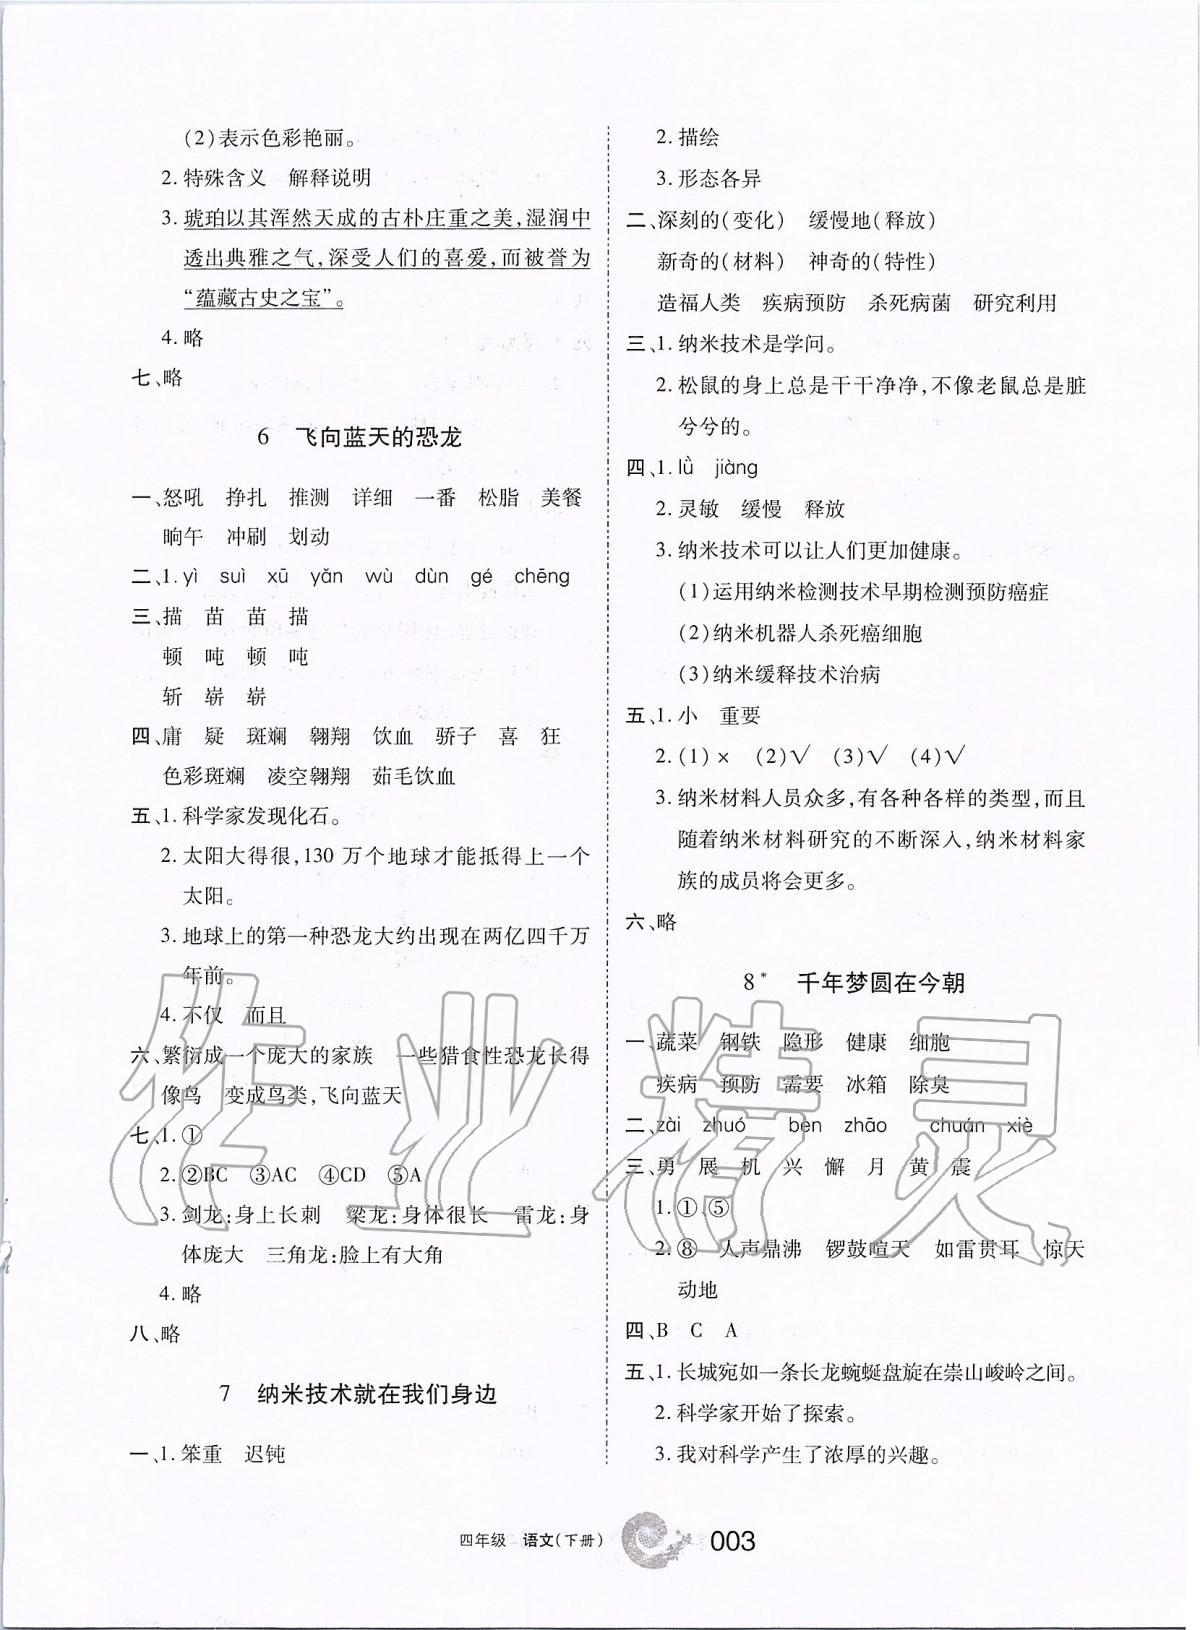 (2)表示色彩艳丽。
2. 特殊含义　解释说明
3. 琥珀以其浑然天成的古朴庄重之美,湿润中
透出典雅之气,深受人们的喜爱,而被誉为
“蕴藏古史之宝”。
4. 略
七、略
6　飞向蓝天的恐龙
一、怒吼　挣扎　推测　详细　一番　松脂　美餐
晌午　冲刷　划动
二、1. yì　suì　xū　yǎn　wù　dùn　gé　chēng
三、描　苗　苗　描
顿　吨　顿　吨
斩　崭　崭
四、庸　疑　斑斓　翱翔　饮血　骄子　喜　狂
色彩斑斓　凌空翱翔　茹毛饮血
五、1. 科学家发现化石。
2. 太阳大得很,130 万个地球才能抵得上一个
太阳。
3. 地球上的第一种恐龙大约出现在两亿四千万
年前。
4. 不仅　而且
六、繁衍成一个庞大的家族　一些猎食性恐龙长得
像鸟　变成鸟类,飞向蓝天
七、1. ①
2. ②BC　③AC　④CD　⑤A
3. 剑龙:身上长刺　梁龙:身体很长　雷龙:身
体庞大　三角龙:脸上有大角
4. 略
八、略
7　纳米技术就在我们身边
一、1. 笨重　迟钝
2. 描绘
3. 形态各异
二、深刻的(变化)　缓慢地(释放)
新奇的(材料)　神奇的(特性)
造福人类　疾病预防　杀死病菌　研究利用
三、1. 纳米技术是学问。
2. 松鼠的身上总是干干净净,不像老鼠总是脏
兮兮的。
四、1. lǜ　jiàng
2. 灵敏　缓慢　释放
3. 纳米技术可以让人们更加健康。
(1)运用纳米检测技术早期检测预防癌症
(2)纳米机器人杀死癌细胞
(3)纳米缓释技术治病
五、1. 小　重要
2. (1)×　(2)√　(3)√　(4)√
3. 纳米材料人员众多,有各种各样的类型,而且
随着纳米材料研究的不断深入,纳米材料家
族的成员将会更多。
六、略
8*　千年梦圆在今朝
一、蔬菜　钢铁　隐形　健康　细胞
疾病　预防　需要　冰箱　除臭
二、zài　zhuó　ben　zhāo　chuán　xiè
三、勇　展　机　兴　懈　月　黄　震
1. ① ⑤
2. ⑧　人声鼎沸　锣鼓喧天　如雷贯耳　惊天
动地
四、B　C　A
五、1. 长城宛如一条长龙蜿蜒盘旋在崇山峻岭之间。
2. 科学家开始了探索。
3. 我对科学产生了浓厚的兴趣。
四年级　语文(下册)　003
作业精灵